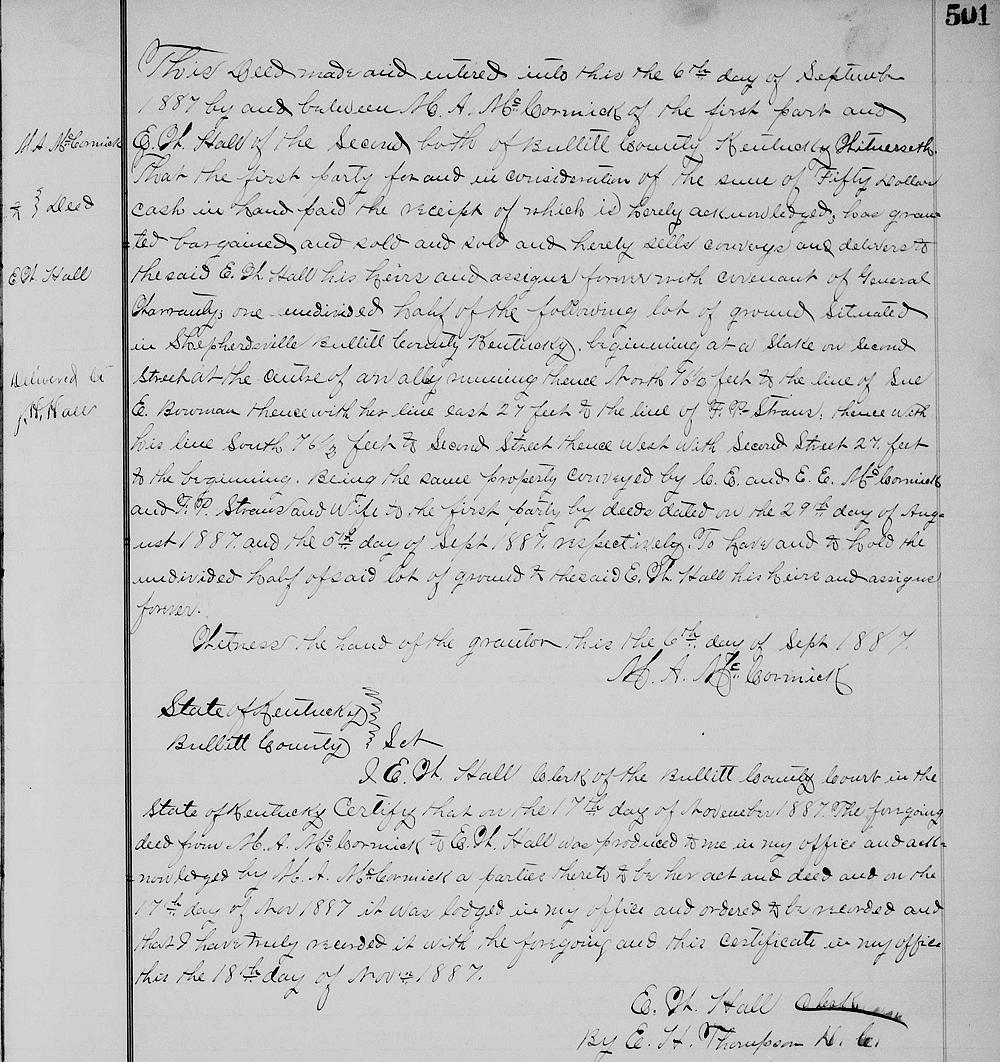 501
This Deed made and entered into this the 6th day of Septemb
1887 by and between M. A. McCormick of the first part and
M A McCormick
E. W. Hall of the Second both of Bullitt County Kentucky Witnesseth.
That the first party for and in consideration of the sum of Fifty Dollars
Deed
cash in hand paid the receipt of which is hereby acknowledged; has gran-
ted bargained and sold and sold and hereby sells conveys and delivers to
E W. Hall
the said E. W Hall his heirs and assigns forever with covenant of General
Warranty; one undivided half of the following lot of ground situated
in Shepherdsville Bullitt County Kentucky, beginning at a Stake on Second
Delivered to
Street at the centre of an ally running thence North 76½ feet to the line of Sue
J. W. Hall
E. Bowman thence with her line east 27 feet to the line of F. P. Straus; thence with
his line South 76½ feet to Second Street thence West with Second Street 27 feet
to the beginning. Being the same property conveyed by C. E. and E. E. McCormick
and F. P. Straus and Wife to the first party by deeds dated on the 29th day of Aug-
ust 1887. and the 5th day of Sept 1887. respectively. To have and to hold the
undivided half of said lot of ground to the said E. W. Hall his heirs and assigns
forever.
Witness the hand of the grantor this the 6th day of Sept 1887.
M. A. McCormick
State of Kentucky
Bullitt County } Sct
I E. W. Hall Clerk of the Bullitt County Court in the
State of Kentucky Certify that on the 17th day of November 1887. The foregoing
deed from M. A. McCormick to E. W. Hall was produced to me in my office and ack-
nowledged by M. A. McCormick a parties thereto to be her act and deed and on the
17th day of Nov 1887 it was lodged in my office and ordered to be recorded and
that I have truly recorded it with the foregoing and this certificate in my office
this the 18th day of Nov 1887.
E. W. Hall Clerk
By E. H. Thompson D. C.